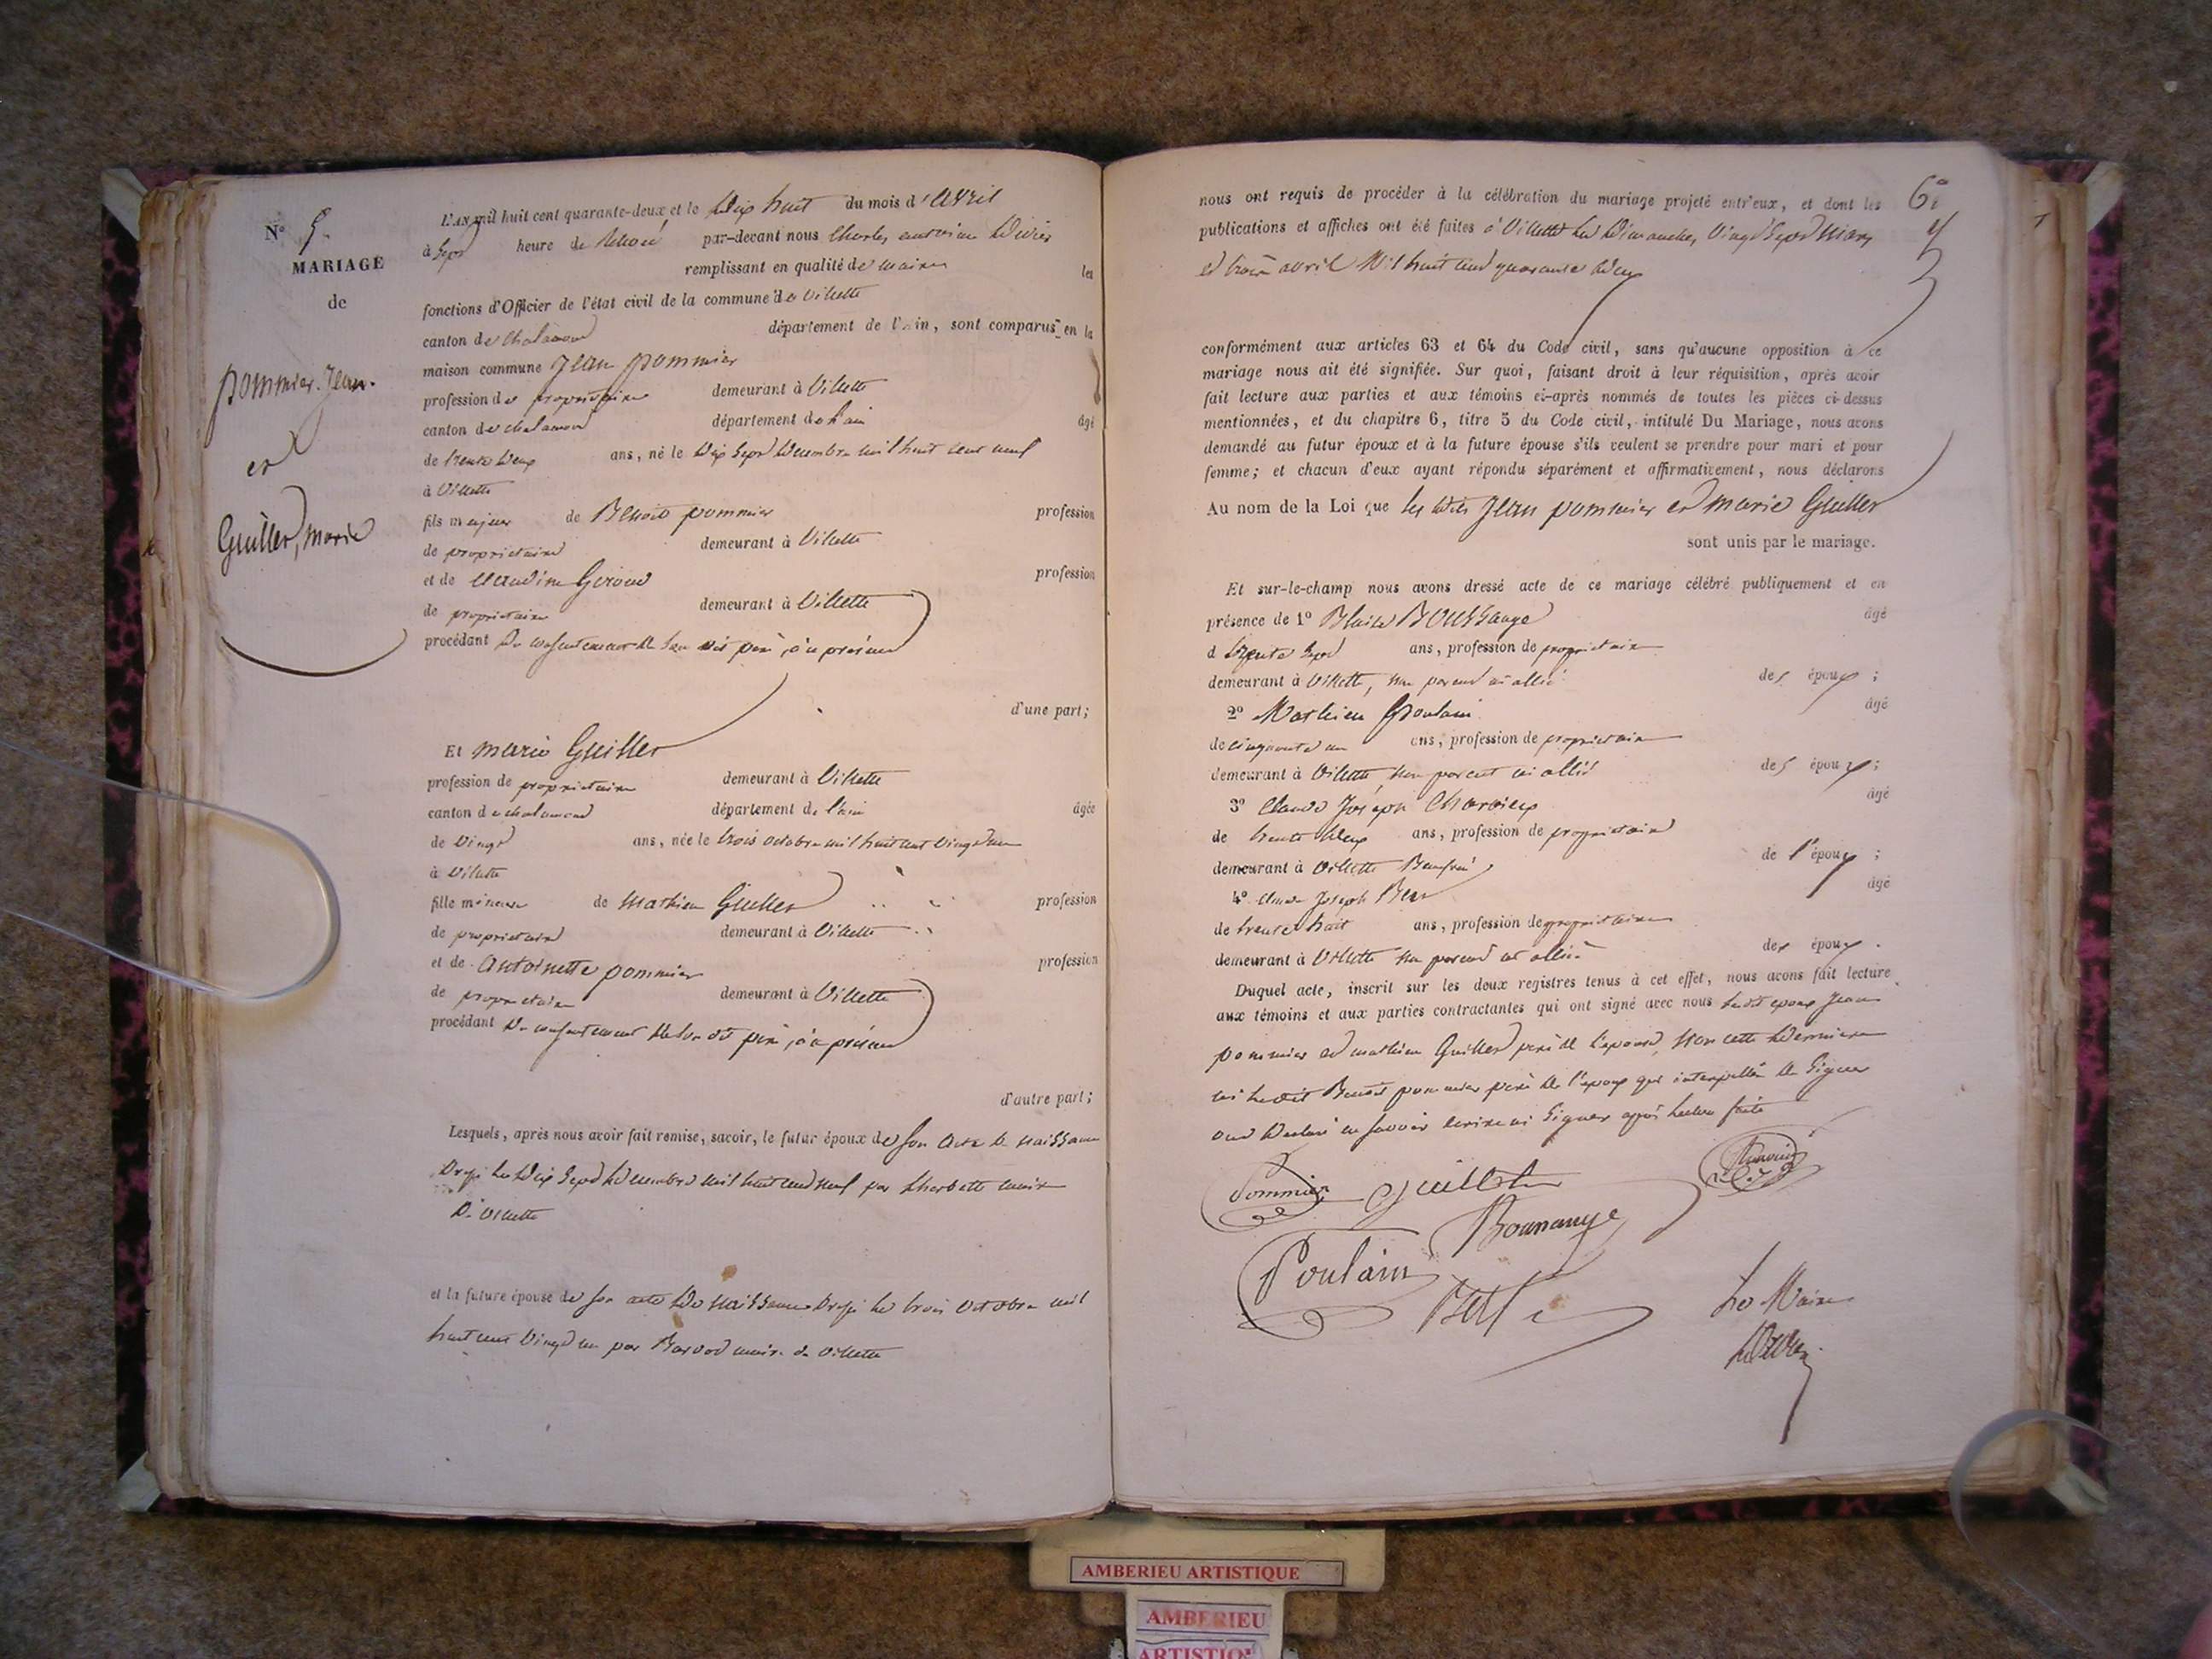 N° 5.
MARIAGE
de
pommier. Jean.
et
Guiller, marie
L'AN mil huit cent quarante-deux et le dix huit du mois d'avril
à Sept heure de par-devant nous Charles
remplissant en qualité de maire les
fonctions d'Officier de l'état civil de la commune de Villette
canton de chalamont département de l'Ain, sont comparus en la
maison commune Jean pommier
profession de propriétaire demeurant à Villette
canton de chalamont département de l'ain âgé
de trente deux ans, né le dix Sept décembre mil huit cent neuf
à Villette
fils majeur de Benoit pommier profession
de propriétaire demeurant à Villette
et de claudine Giroud profession
de propriétaire demeurant à Villette
procédant du consentement de son dit père, ici présent
d'une part;
Et marie Guiller
profession de propriétaire demeurant à Villette
canton de chalamont département de l'ain âgée
de vingt ans, née le trois octobre mil huit cent vingt un
à Villette
fille mineure de mathieu Guiller profession
de propriétaire demeurant à Villette
et de antoinette pommier profession
de propriétaire demeurant à Villette
procédant du consentement de son dit père, ici présent
d'autre part;
Lesquels, après nous avoir fait remise, savoir, le futur époux de son acte de naissance
le dix Sept décembre mil huit cent neuf par maire
de Villette
et la future épouse de son acte de naissance le trois octobre mil
huit cent vingt un par maire de Villette
nous ont requis de procéder à la célébration du mariage projeté entr'eux, et dont les
publications et affiches ont été faites à Villette les dimanches vingt Sept mars
et trois avril mil huit cent quarante deux
conformément aux articles 63 et 64 du Code civil, sans qu'aucune opposition à ce
mariage nous ait été signifiée. Sur quoi, faisant droit à leur réquisition, après avoir
fait lecture aux parties et aux témoins ci-après nommés de toutes les pièces ci-dessus
mentionnées, et du chapitre 6, titre 5 du Code civil, intitulé Du Mariage, nous avons
demandé au futur époux et à la future épouse s'ils veulent se prendre pour mari et pour
femme; et chacun d'eux ayant répondu séparément et affirmativement, nous déclarons
Au nom de la Loi que les dits Jean pommier et marie Guiller
sont unis par le mariage.
Et sur-le-champ nous avons dressé acte de ce mariage célébré publiquement et en
présence de 1° Blaise Boussange âgé
d trente Sept ans, profession de propriétaire
demeurant à Villette, non parent ni allié des époux;
2° Mathieu Poulain âgé
de cinquante un ans, profession de propriétaire
demeurant à Villette non parent ni allié des époux;
3° Claude Joseph Charvieux âgé
de trente deux ans, profession de propriétaire
demeurant à Villette Beaufrère de l'époux;
4° Claude Joseph âgé
de trente huit ans, profession de propriétaire
demeurant à Villette non parent ni allié des époux.
Duquel acte, inscrit sur les deux registres tenus à cet effet, nous avons fait lecture
aux témoins et aux parties contractantes qui ont signé avec nous ledit époux Jean
pommier et mathieu Guiller père de l'épouse, non cette dernière
ni ledit Benoit pommier père de l'époux qui interpellés de Signer
ont déclaré ne savoir écrire ni Signer après lecture faite
Pommier Guillot
Poulain
Le Maire
AMBERIEU ARTISTIQUE
AMBERIEU